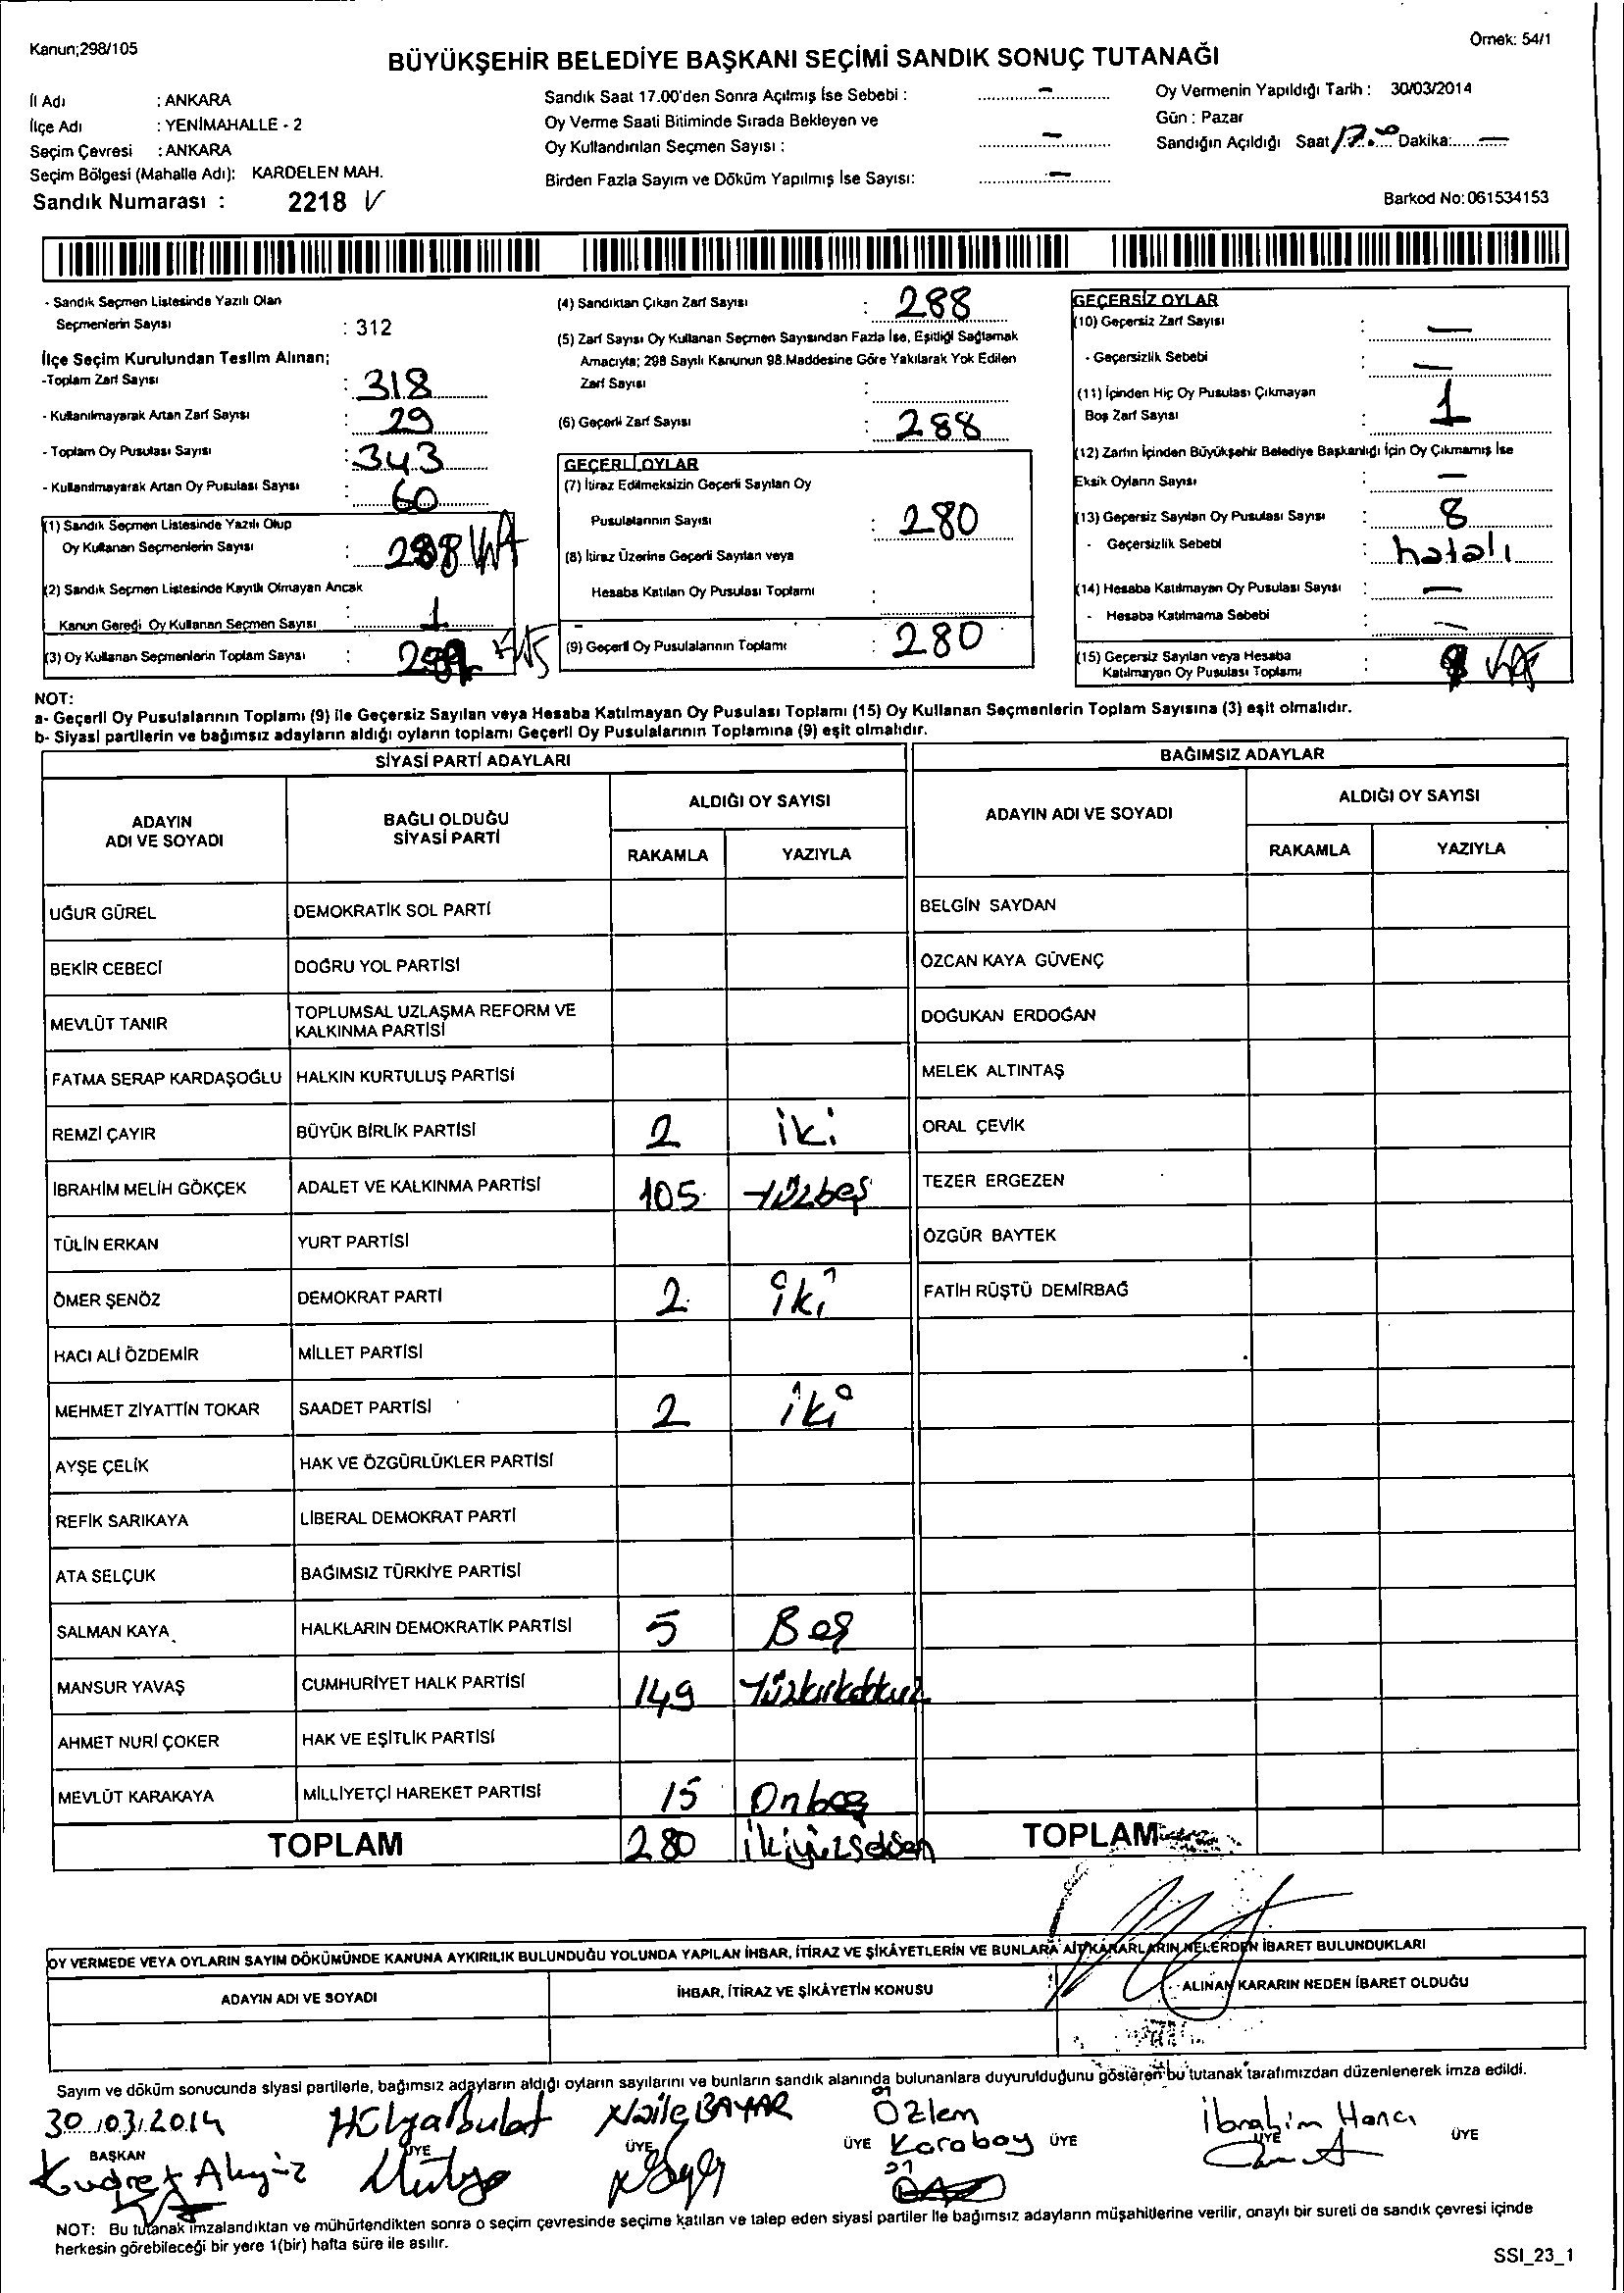 Kanun;298/105
Örnek: 54/1
BÜYÜKŞEHİR BELEDİYE BAŞKANI SEÇİMİ SANDIK SONUÇ TUTANAĞI
İl Adı : ANKARA
İlçe Adı : YENİMAHALLE - 2
Seçim Çevresi : ANKARA
Seçim Bölgesi (Mahalle Adı): KARDELEN MAH.
Sandık Numarası : 2218
Sandık Saat 17.00'den Sonra Açılmış İse Sebebi : -
Oy Verme Saati Bitiminde Sırada Bekleyen ve
Oy Kullandırılan Seçmen Sayısı : -
Birden Fazla Sayım ve Döküm Yapılmış İse Sayısı: -
Oy Vermenin Yapıldığı Tarih : 30/03/2014
Gün : Pazar
Sandığın Açıldığı Saat 17.00 Dakika: -
Barkod No: 061534153
- Sandık Seçmen Listesinde Yazılı Olan
Seçmenlerin Sayısı : 312
İlçe Seçim Kurulundan Teslim Alınan;
-Toplam Zarf Sayısı : 318
- Kullanılmayarak Artan Zarf Sayısı : 29
- Toplam Oy Pusulası Sayısı : 343
- Kullanılmayarak Artan Oy Pusulası Sayısı : 60
(1) Sandık Seçmen Listesinde Yazılı Olup
Oy Kullanan Seçmenlerin Sayısı : 288
(2) Sandık Seçmen Listesinde Kayıtlı Olmayan Ancak
Kanun Gereği Oy Kullanan Seçmen Sayısı : 1
(3) Oy Kullanan Seçmenlerin Toplam Sayısı :
(4) Sandıktan Çıkan Zarf Sayısı : 288
(5) Zarf Sayısı Oy Kullanan Seçmen Sayısından Fazla İse, Eşitliği Sağlamak
Amacıyla; 298 Sayılı Kanunun 98.Maddesine Göre Yakılarak Yok Edilen
Zarf Sayısı :
(6) Geçerli Zarf Sayısı : 288
GEÇERLİ OYLAR
(7) İtiraz Edilmeksizin Geçerli Sayılan Oy
Pusulalarının Sayısı : 280
(8) İtiraz Üzerine Geçerli Sayılan veya
Hesaba Katılan Oy Pusulası Toplamı :
-
(9) Geçerli Oy Pusulalarının Toplamı : 280
GEÇERSİZ OYLAR
(10) Geçersiz Zarf Sayısı : -
- Geçersizlik Sebebi : -
(11) İçinden Hiç Oy Pusulası Çıkmayan
Boş Zarf Sayısı : 1
(12) Zarfın İçinden Büyükşehir Belediye Başkanlığı İçin Oy Çıkmamış İse
Eksik Oyların Sayısı : -
(13) Geçersiz Sayılan Oy Pusulası Sayısı : 8
- Geçersizlik Sebebi : hatalı
(14) Hesaba Katılmayan Oy Pusulası Sayısı : -
- Hesaba Katılmama Sebebi : -
(15) Geçersiz Sayılan veya Hesaba
Katılmayan Oy Pusulası Toplamı :
NOT:
a- Geçerli Oy Pusulalarının Toplamı (9) ile Geçersiz Sayılan veya Hesaba Katılmayan Oy Pusulası Toplamı (15) Oy Kullanan Seçmenlerin Toplam Sayısına (3) eşit olmalıdır.
b- Siyasi partilerin ve bağımsız adayların aldığı oyların toplamı Geçerli Oy Pusulalarının Toplamına (9) eşit olmalıdır.
SİYASİ PARTİ ADAYLARI
ADAYIN ADI VE SOYADI
BAĞLI OLDUĞU SİYASİ PARTİ
ALDIĞI OY SAYISI
RAKAMLA YAZIYLA
UĞUR GÜREL DEMOKRATİK SOL PARTİ
BEKİR CEBECİ DOĞRU YOL PARTİSİ
MEVLÜT TANIR TOPLUMSAL UZLAŞMA REFORM VE
KALKINMA PARTİSİ
FATMA SERAP KARDAŞOĞLU HALKIN KURTULUŞ PARTİSİ
REMZİ ÇAYIR BÜYÜK BİRLİK PARTİSİ 2 iki
İBRAHİM MELİH GÖKÇEK ADALET VE KALKINMA PARTİSİ 105 Yüzbeş
TÜLİN ERKAN YURT PARTİSİ
ÖMER ŞENÖZ DEMOKRAT PARTİ 2 iki
HACI ALİ ÖZDEMİR MİLLET PARTİSİ
MEHMET ZİYATTİN TOKAR SAADET PARTİSİ 2 iki
AYŞE ÇELİK HAK VE ÖZGÜRLÜKLER PARTİSİ
REFİK SARIKAYA LİBERAL DEMOKRAT PARTİ
ATA SELÇUK BAĞIMSIZ TÜRKİYE PARTİSİ
SALMAN KAYA HALKLARIN DEMOKRATİK PARTİSİ 5 Beş
MANSUR YAVAŞ CUMHURİYET HALK PARTİSİ 149 Yüzkırkdokuz
AHMET NURİ ÇOKER HAK VE EŞİTLİK PARTİSİ
MEVLÜT KARAKAYA MİLLİYETÇİ HAREKET PARTİSİ 15 Onbeş
TOPLAM 280 İkiyüzseksen
BAĞIMSIZ ADAYLAR
ADAYIN ADI VE SOYADI
ALDIĞI OY SAYISI
RAKAMLA YAZIYLA
BELGİN SAYDAN
ÖZCAN KAYA GÜVENÇ
DOĞUKAN ERDOĞAN
MELEK ALTINTAŞ
ORAL ÇEVİK
TEZER ERGEZEN
ÖZGÜR BAYTEK
FATİH RÜŞTÜ DEMİRBAĞ
TOPLAM
OY VERMEDE VEYA OYLARIN SAYIM DÖKÜMÜNDE KANUNA AYKIRILIK BULUNDUĞU YOLUNDA YAPILAN İHBAR, İTİRAZ VE ŞİKÂYETLERİN VE BUNLARA AİT KARARLARIN NELERDEN İBARET BULUNDUKLARI
ADAYIN ADI VE SOYADI
İHBAR, İTİRAZ VE ŞİKÂYETİN KONUSU
ALINAN KARARIN NEDEN İBARET OLDUĞU
Sayım ve döküm sonucunda siyasi partilerle, bağımsız adayların aldığı oyların sayılarını ve bunların sandık alanında bulunanlara duyurulduğunu gösteren bu tutanak tarafımızdan düzenlenerek imza edildi.
30/03/2014 Hülya Bulat Naile BAYAR Özlem Karabay İbrahim Hancı
BAŞKAN ÜYE ÜYE ÜYE ÜYE ÜYE ÜYE
Kudret Akyüz
NOT: Bu tutanak imzalandıktan ve mühürlendikten sonra o seçim çevresinde seçime katılan ve talep eden siyasi partiler ile bağımsız adayların müşahitlerine verilir, onaylı bir sureti de sandık çevresi içinde
herkesin görebileceği bir yere 1(bir) hafta süre ile asılır.
SSI_23_1